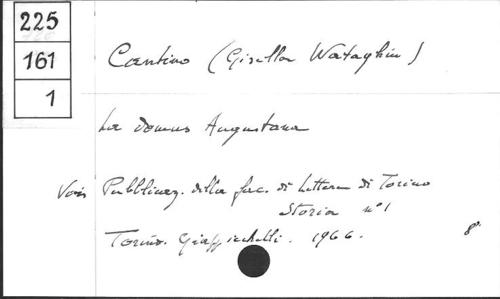 225
161
1
Cantino (Gisella Wataghin)
La domus Augustana
Vois Pubblicaz. della fac. di Lettere di Torino
Storia nº1
Torino. Giappichelli. 1966. 8º